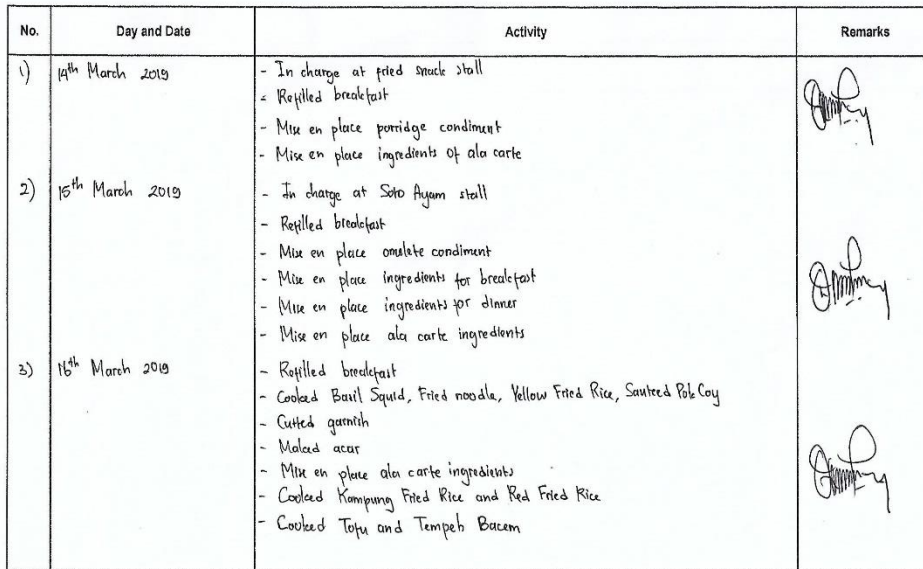 No. Day and Date Activity Remarks
1) 14th March 2019 - In charge at fried snack stall
- Refilled breakfast
- Mise en place porridge condiment
- Mise en place ingredients of ala carte
2) 15th March 2019 - In charge at Soto Ayam stall
- Refilled breakfast
- Mise en place omelete condiment
- Mise en place ingredients for breakfast
- Mise en place ingredients for dinner
- Mise en place ala carte ingredients
3) 16th March 2019 - Refilled breakfast
- Cooked Basil Squid, Fried noodle, Yellow Fried Rice, Sauteed Pok Coy
- Cutted garnish
- Maked acar
- Mise en place ala carte ingredients
- Cooked Kampung Fried Rice and Red Fried Rice
- Cooked Tofu and Tempeh Bacem